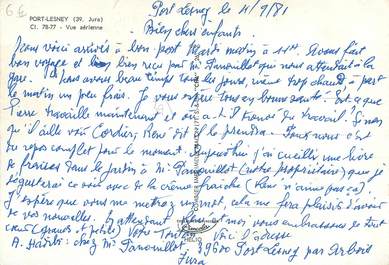 PORT-LESNEY (39, Jura)
Cl. 78-77 - Vue aérienne
Port Lesney le 11/9/81
Bien chers enfants.
Nous voici arrivés à bon port Mardi matin à 11H. Avons fait
bon voyage et bien reçu par M. Panouillot qui nous attendait à la
gare. Nous avons beau temps tous les jours, même trop chaud à part
le matin un peu frais. Je vous espère tous en bonne santé. Est-ce que
Pierre travaille maintenant et où il trouve du travail. Sinon
qu'il aille voir Cordier, René dit il le prendra. Pour nous c'est
du repos complet pour le moment. Aujourd'hui j'ai cueilli une livre
de fraises dans le jardin à M. Panouillot (notre propriétaire) que je
dégusterai ce soir avec de la crème fraîche (René n'aime pas ça).
J'espère que vous me mettrez un mot, cela me fera plaisir d'avoir
de vos nouvelles. En attendant René et moi vous embrassons de tout
cœur (grands et petits) Votre Tonton Voici l'adresse
A. chez M. Panouillot 39600 Port Lesney par Arbois
Jura